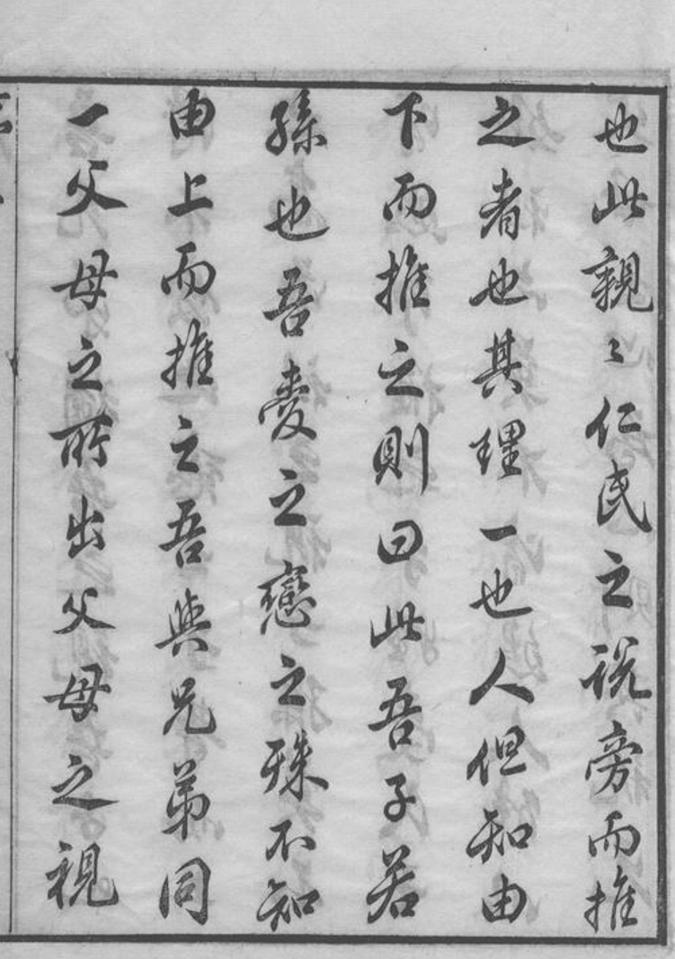 也此親〻仁民之说旁而推
之者也其理一也人但知由
下而推之則曰此吾子若
孫也吾愛之戀之殊不知
由上而推之吾與兄弟同
一父母之所出父母之視